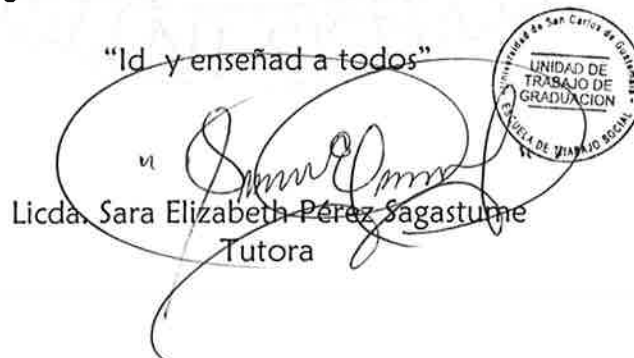 “Id y enseñad a todos”
Universidad de San Carlos de Guatemala
UNIDAD DE
TRABAJO DE
GRADUACION
ESCUELA DE TRABAJO SOCIAL
Licda. Sara Elizabeth Pérez Sagastume
Tutora